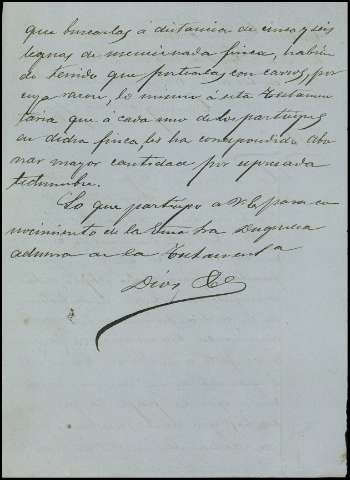 que buscarlas á distancia de cinco y seis
leguas de mencionada finca, habien
do tenido que portearlas con carros, por
cuya razon, lo mismo á esta Testamen
taría que á cada uno de los partícipes
en dicha finca les ha correspondido abo
nar mayor cantidad por espresada
techumbre.
Lo que participo a V. E. para co
nocimiento de la Exma Sra Duquesa
a la Testamenta
Dios &